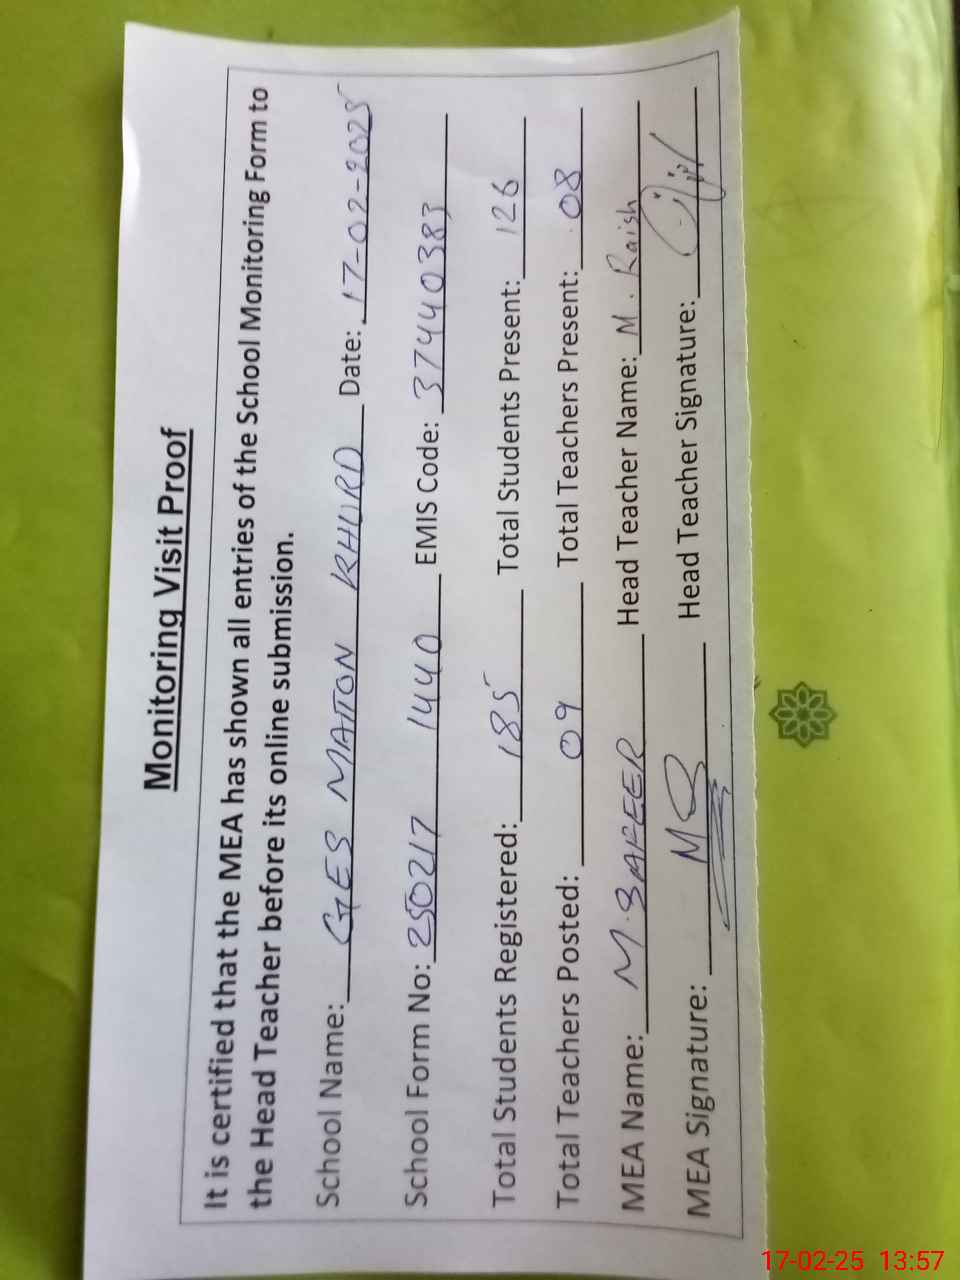 Monitoring Visit Proof
It is certified that the MEA has shown all entries of the School Monitoring Form to
the Head Teacher before its online submission.
School Name: GES MATTON KHURD Date: 17-02-2025
School Form No: 250217 1440 EMIS Code: 37440383
Total Students Registered: 185 Total Students Present: 126
Total Teachers Posted: 09 Total Teachers Present: 08
MEA Name: M. SAFEER Head Teacher Name: M. Raish
MEA Signature: MS Head Teacher Signature:
17-02-25 13:57